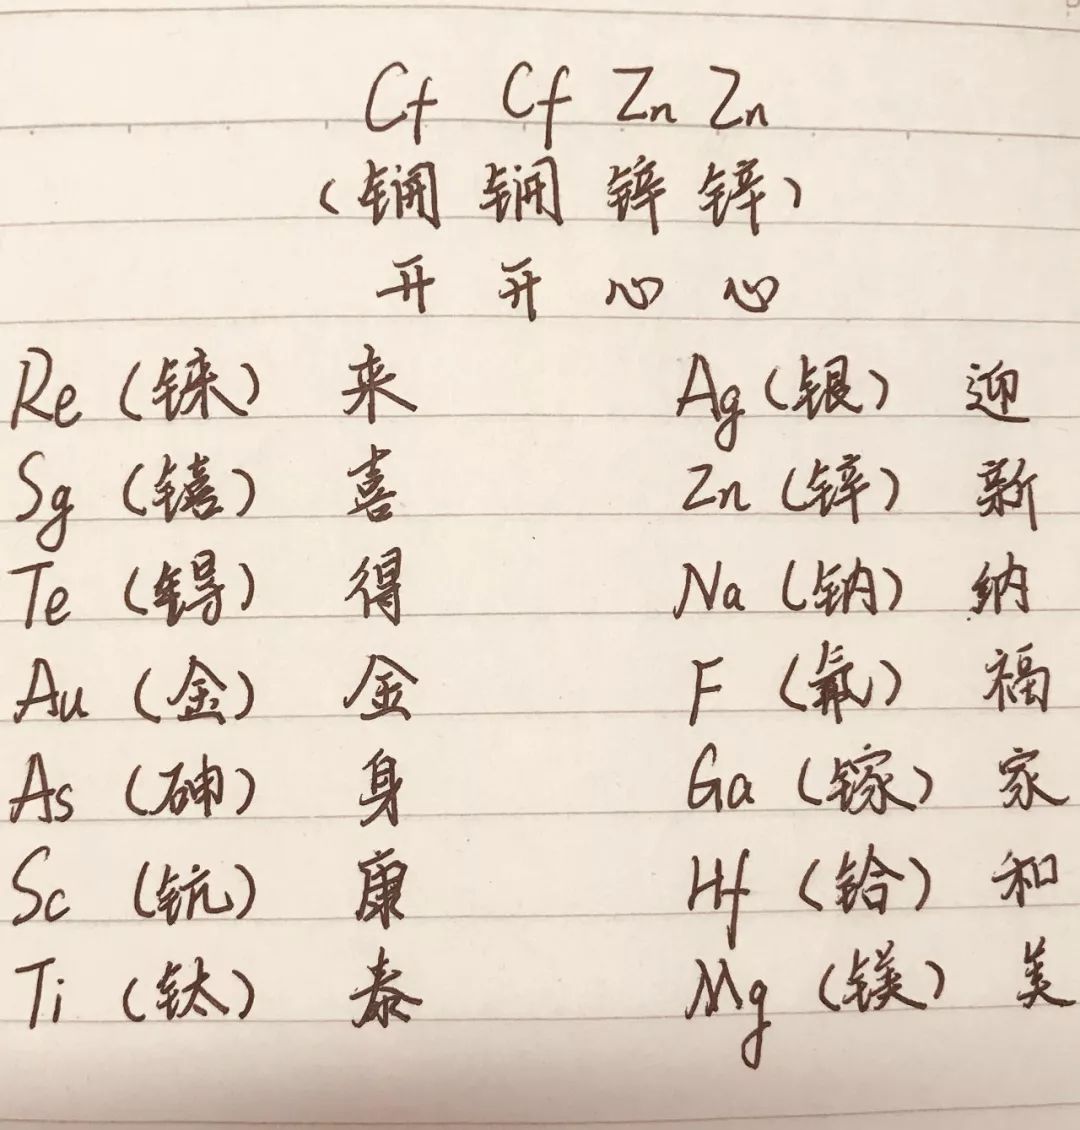 Cf Cf Zn Zn
(锎 锎 锌 锌)
开 开 心 心
Re (铼) 来 Ag (银) 迎
Sg (𬭳) 喜 Zn (锌) 新
Te (锝) 得 Na (钠) 纳
Au (金) 金 F (氟) 福
As (砷) 身 Ga (镓) 家
Sc (钪) 康 Hf (铪) 和
Ti (钛) 泰 Mg (镁) 美